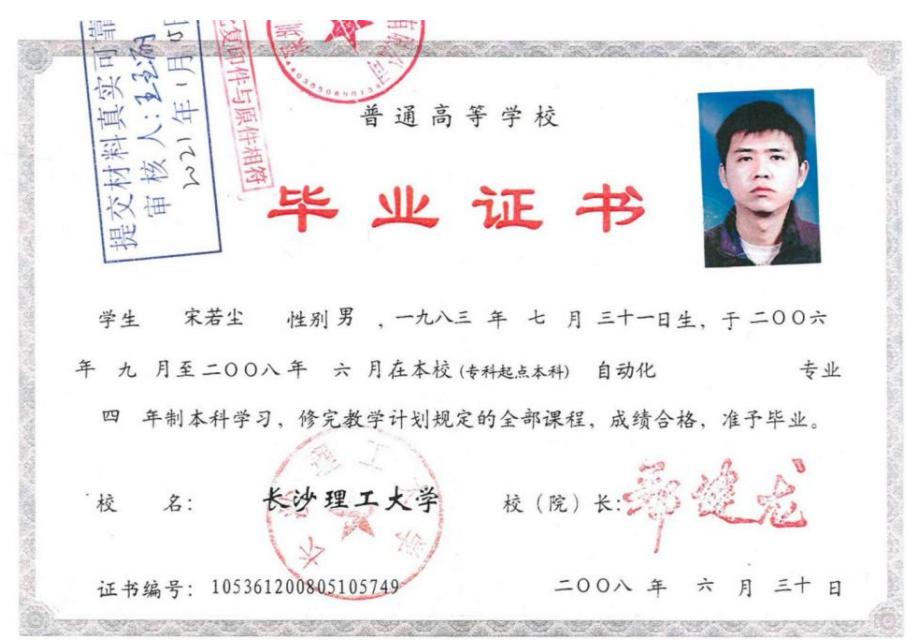 提交材料真实可靠
审核人:
2021年1月5日
复印件与原件相符
普通高等学校
毕业证书
学生 宋若尘 性别 男 ，一九八三 年 七 月 三十一日生，于 二〇〇六
年 九 月至 二〇〇八 年 六 月在本校 (专科起点本科) 自动化 专业
四 年制本科学习，修完教学计划规定的全部课程，成绩合格，准予毕业。
校 名： 长沙理工大学 校（院）长：
长沙理工大学
证书编号：105361200805105749 二〇〇八 年 六 月 三十 日